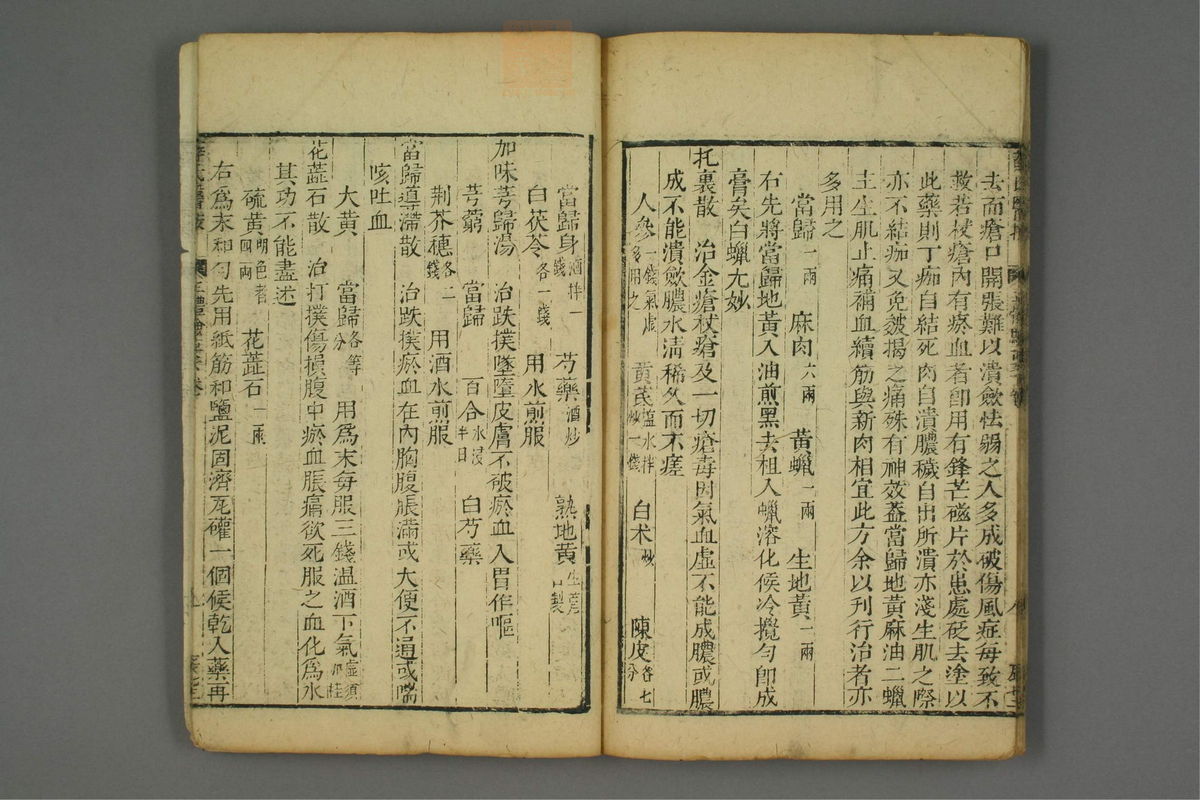 去而瘡口開張難以潰斂怯弱之人多成破傷風症每致不
救若杖瘡內有瘀血者卽用有鋒芒磁片於患處砭去塗以
此藥則丁痂自結死肉自潰膿穢自出所潰亦淺生肌之際
亦不結痂又免皴揭之痛殊有神效蓋當歸地黃麻油二蠟
主生肌止痛補血續筋與新肉相宜此方余以刊行治者亦
多用之
當歸一兩 麻肉六兩 黃蠟一兩 生地黃一兩
右先將當歸地黃入油煎黑去柤入蠟溶化候冷攪勻卽成
膏矣白蠟尤妙
托裏散 治金瘡杖瘡及一切瘡毒因氣血虛不能成膿或膿
成不能潰斂膿水清稀久而不瘥
人參一錢氣虛多用之 黃芪鹽水拌炒一錢 白朮炒 陳皮各七分
當歸身酒拌一錢 芍藥酒炒 熟地黃生者自製
白茯苓各一錢 用水煎服
加味芎歸湯 治跌撲墜墮皮膚不破瘀血入胃作嘔
芎藭 當歸 百合水浸半日 白芍藥
荆芥穗各二錢 用酒水煎服
當歸導滯散 治跌撲瘀血在內胸腹脹滿或大便不通或喘
咳吐血
大黃 當歸各等分 用爲末每服三錢溫酒下氣虛須加桂
花蕋石散 治打撲傷損腹中瘀血脹痛欲死服之血化爲水
其功不能盡述
硫黃明色者四兩 花蕋石一二兩
右爲末和勻先用紙筋和鹽泥固濟瓦罐一個候乾入藥再